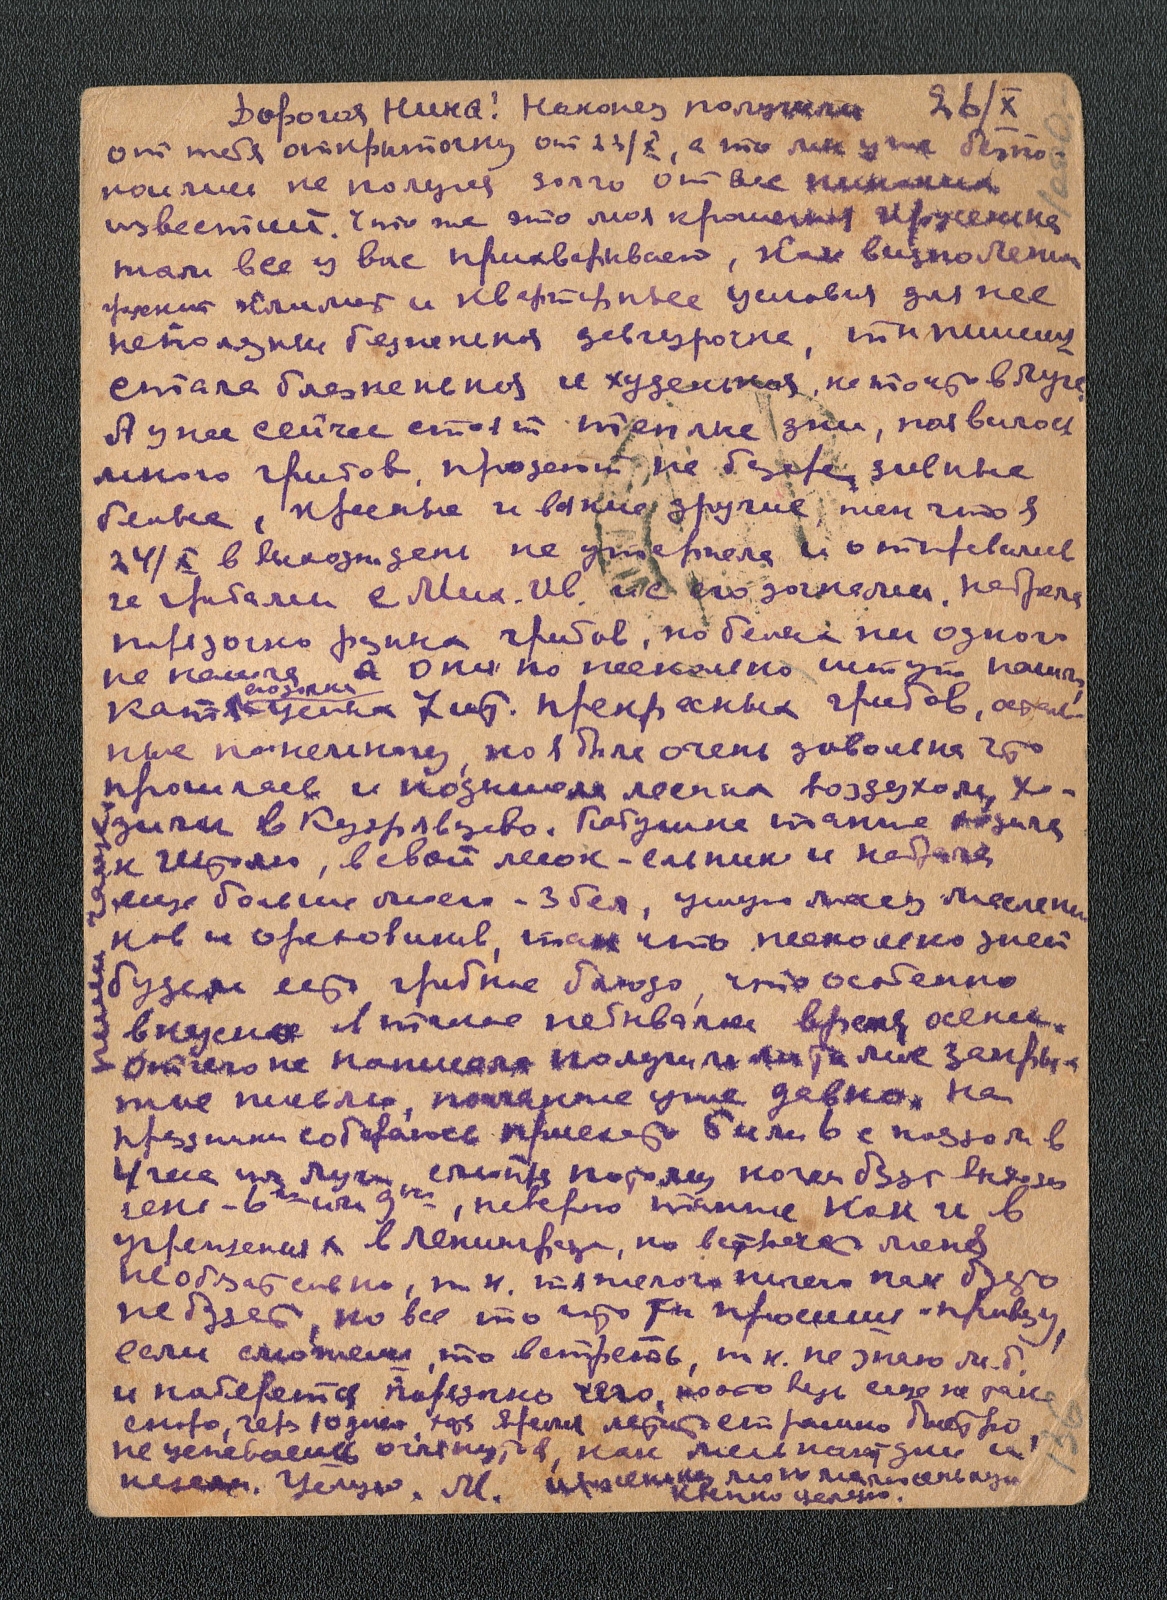 Дорогая Нина! Наконец получили 26/X
от тебя открыточку от 23/X, а то мы уже безпо-
коились не получая долго от вас
известий. Что же это моя крошечная Ируженька
там все у вас прихварывает, как видно Ленин
градский климат и квартирные условия для нее
неполезны бедненькая девчурочка, ты пишешь
стала бледненькая и худенькая, не то что в Луге
А у нас сейчас стоят теплые дни, появилось
много грибов, продают на базаре дивные
белые, красные и всякие другие, так что я
24/X в выходн. день не утерпела и отправились
за грибами с Мих. Ив. и с его догналам. Набрала
порядочно рыжих грибов, но белых ни одного
не нашла, а они по несколько штук нашли,
Катя 7 шт. прекрасных грибов, осталь-
ные понемногу, но я была очень довольна что
прошлась и подышала лесным воздухом, хо-
дили в Кудрявцево. Бабушка также ходила
к Щегол, в свой лесок-ельник и набрала
еще больше моего - 3 бел, уйму масленн
ков и ореховиков, так что несколько дней
будем есть грибные блюдо, что особенно
вкусно в такое небывалое время осени.
Отчего не написала получили ли вы мое закры-
тое письмо, посланное уже давно. На
праздники собираюсь приехать 5 или 6 с поездом в
4 часа из Луги, смотря потому когда будет выход
день - 6го или 9го, наверно также как и в
учреждениях в Ленинграде, но встречать меня
необязательно, т.к. тяжелого ничего как будто
не будет, но все то что ты просишь привезу,
если сможешь, то встреть, т.к. не знаю м.б.
и наберется порядочно чего, но это ведь еще не так
скоро, через 10 дней, хотя время летит страшно быстро,
не успеваешь оглянуться, как мелькают дни и
недели. Целую. М. Ируженьку мою малюсенькую
крепко целую.